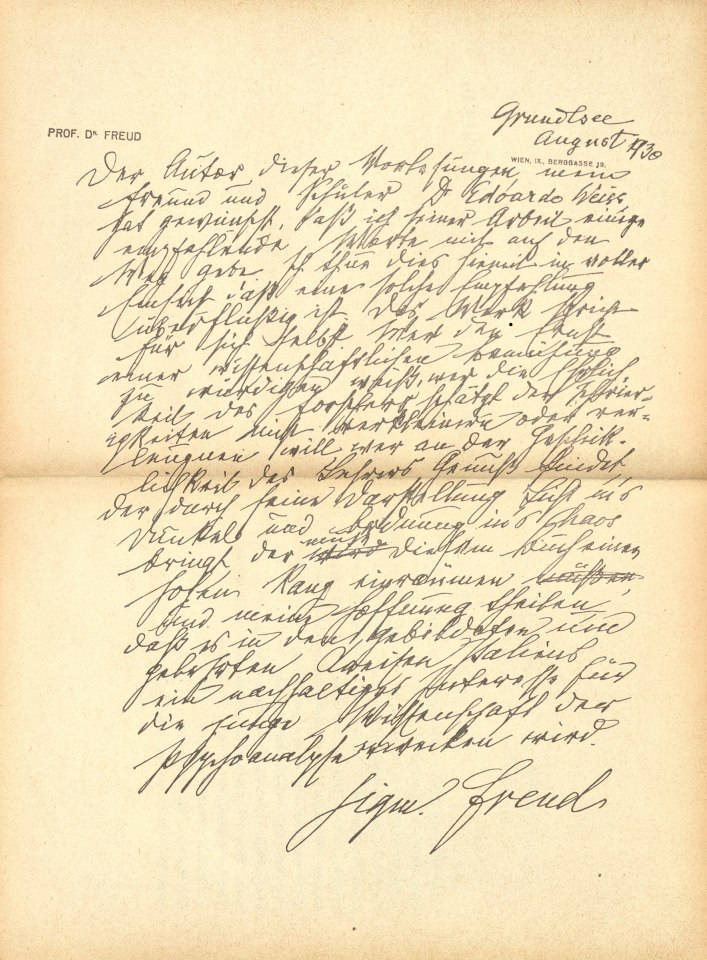 Grundlsee
August 1930
PROF. DR. FREUD
WIEN, IX., BERGGASSE 19.
Der Autor dieser Vorlesungen mein
Freund und Schüler Dr Edoardo Weiss
hat gewünscht, daß ich seiner Arbeit einige
empfehlende Worte mit auf den
Weg gebe. Ich thue dies hiemit in voller
Einsicht daß eine solche Empfehlung
überflüßig ist. Das Werk spricht
für sich selbst. Wer den Ernst
einer wissenschaftlichen Bemühung
zu würdigen weiß, wer die Ehrlich-
keit des Forschers schätzt der Schwier-
igkeiten nicht verkleinern oder ver-
leugnen will wer an der Geschick-
lichkeit des Lehrers Genuß findet,
der durch seine Darstellung Licht ins
Dunkel und Ordnung ins Chaos
bringt der muß wird diesem Buch einen
hohen Rang einräumen müßen,
und meine Hoffnung theilen
daß es in den gebildeten und
gelehrten Kreisen Italiens
ein nachhaltiges Interesse für
die junge Wissenschaft der
Psychoanalyse erwecken wird.
Sigm. Freud